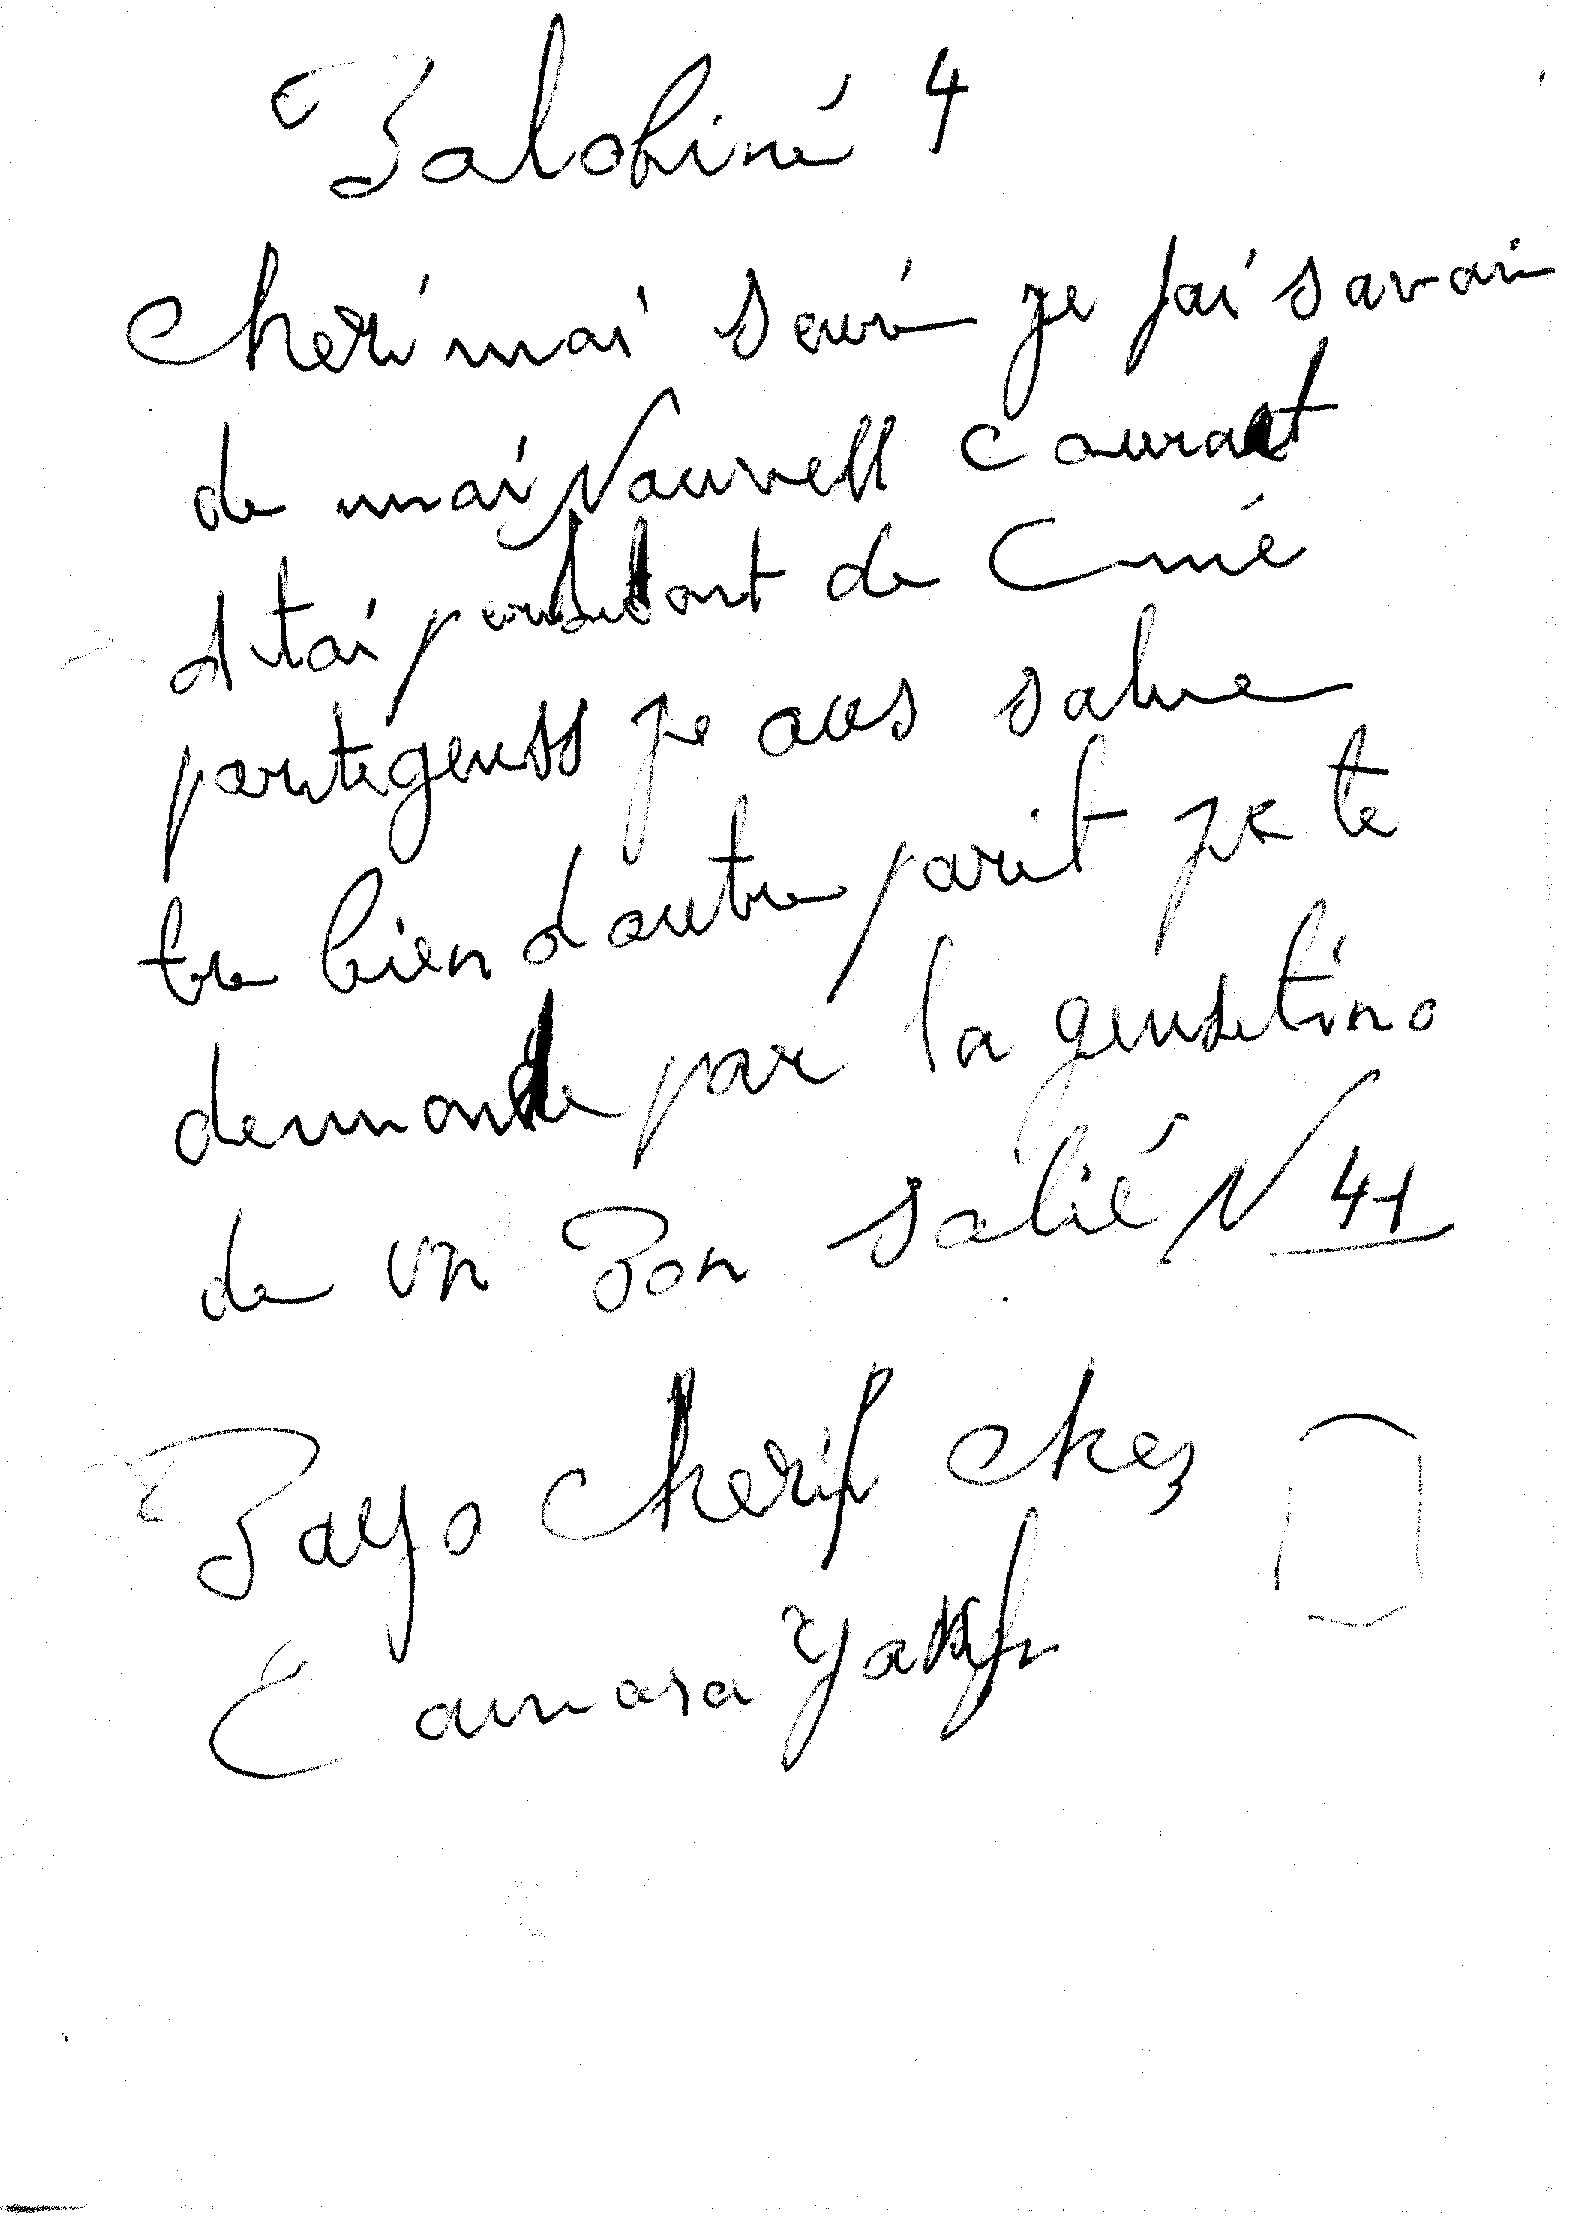 Balobiné 4
Cheri mai seuri je fai savoir
de mai Nouvell courat
de tai pendant de Cuné
partegeuss je aus salue
tre bien d autre parit je te
demande par la geusetino
de un Bon salié N 41
Bayo Cherif chez
Camara Yaya